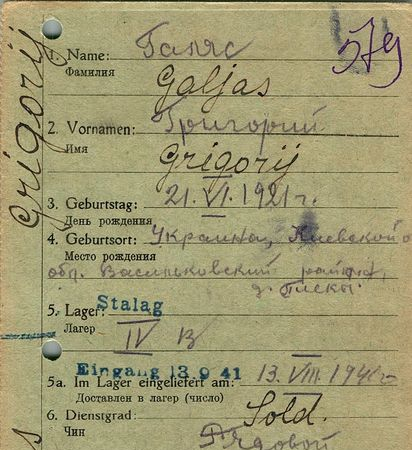 Grigorij
579
1. Name: Галяс
Фамилия
Galjas
2. Vornamen: Григорий
Имя
Grigorij
3. Geburtstag: 21.VI.1921 г.
День рождения
4. Geburtsort: Украина, Киевской
Место рождения
обл. Васильковский района,
д. Пески.
5. Lager: Stalag
Лагер
IV B
Eingang 13 9 41
5a. Im Lager eingeliefert am: 13.VIII.1941 г.
Доставлен в лагер (число)
6. Dienstgrad: Sold.
Чин
Рядовой